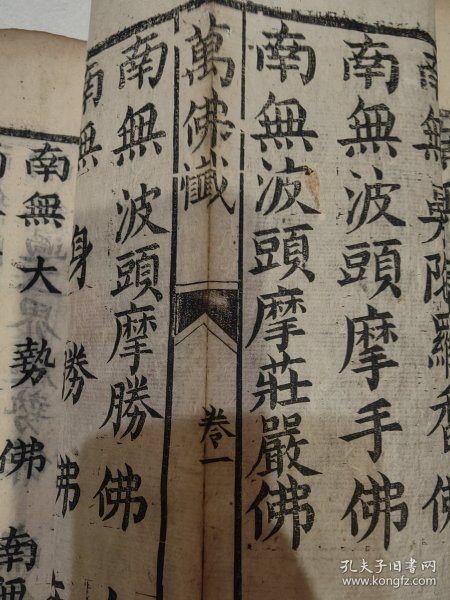 陳羅香佛
南無波頭摩手佛
南無波頭摩莊嚴佛
萬佛懺
卷一
南無波頭摩勝佛
南無
身勝佛
南無大勢佛
南無
孔夫子旧书网
www.kongfz.com